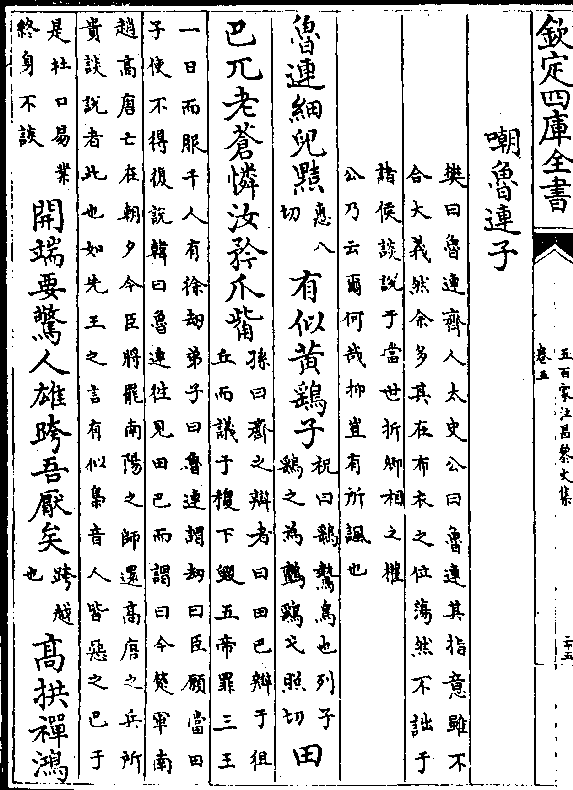 欽定四庫全書
五百家注昌黎文集
卷五
二十五
嘲魯連子
樊曰魯連齊人太史公曰魯連其指意雖不
合大義然余多其在布衣之位蕩然不詘于
諸侯談說于當世折卿相之權
公乃云爾何哉抑豈有所諷也
魯連細兒黠惠八切有似黄鷂子祝曰鷂鷙鳥也列子鷂之為鸇鷂弋照切田
巴兀老蒼憐汝矜爪觜孫曰齊之辯者曰田巴辯于徂丘而議于稷下毁五帝罪三王
一日而服千人有徐劫弟子曰魯連謂劫曰臣願當田
子使不得復說韓曰魯連往見田巴而謂曰今楚軍南
趙髙唐亡在朝夕今臣將罷南陽之師還髙唐之兵所
貴談說者此也如先王之言有似梟音人皆惡之巴于
是杜口易業終身不談開端要驚人雄跨吾厭矣跨越也髙拱禪鴻